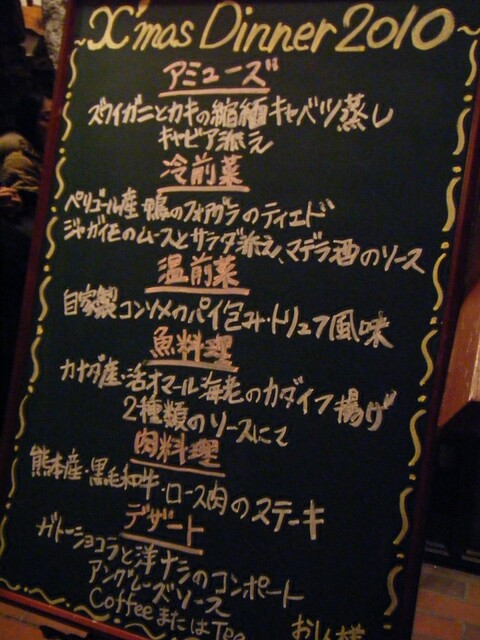 ~X'mas Dinner 2010~
アミューズ
ズワイガニとカキの縮緬キャベツ蒸し
キャビア添え
冷前菜
ペリゴール産 鴨のフォアグラのティエド
ジャガイモのムースとサラダ添え、マデラ酒のソース
温前菜
自家製コンソメのパイ包み・トリュフ風味
魚料理
カナダ産・活オマール海老のカダイフ揚げ
2種類のソースにて
肉料理
熊本産・黒毛和牛・ロース肉のステーキ
デザート
ガトーショコラと洋ナシのコンポート
アングレーズソース
Coffee または Tea